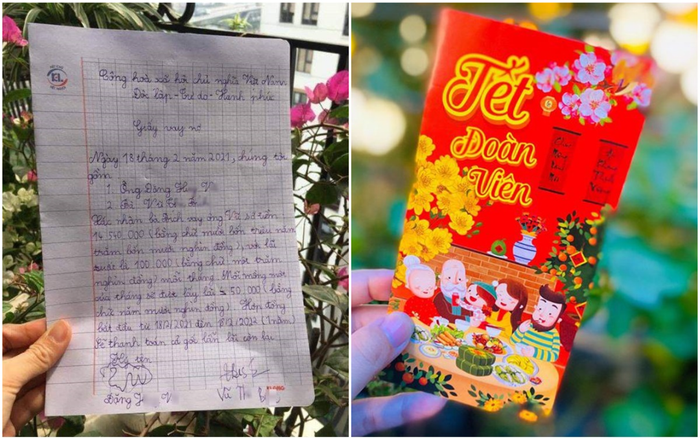 Cộng hoà xã hội chủ nghĩa Việt Nam
Độc lập - Tự do - Hạnh phúc
Giấy vay nợ
Ngày 18 tháng 2 năm 2021, chúng tôi
gồm
1. Ông Đặng H V
2. Bà Vũ Th
Xác nhận bà Bích vay ông Vũ số tiền
14.540.000 (bằng chữ mười bốn triệu năm
trăm bốn mươi nghìn đồng), với lãi
suất là 100.000 (bằng chữ: một trăm
nghìn đồng) mỗi tháng. Mỗi mồng một
của tháng sẽ được lấy lãi 50.000 (bằng
chữ năm mươi nghìn đồng). Hợp đồng
bắt đầu từ 18/2/2021 đến 18/2/2022 (1 năm)
sẽ thanh toán cả gốc lẫn lãi còn lại
Ký tên
Đặng H V
Vũ Th B
Tết
Đoàn
Viên